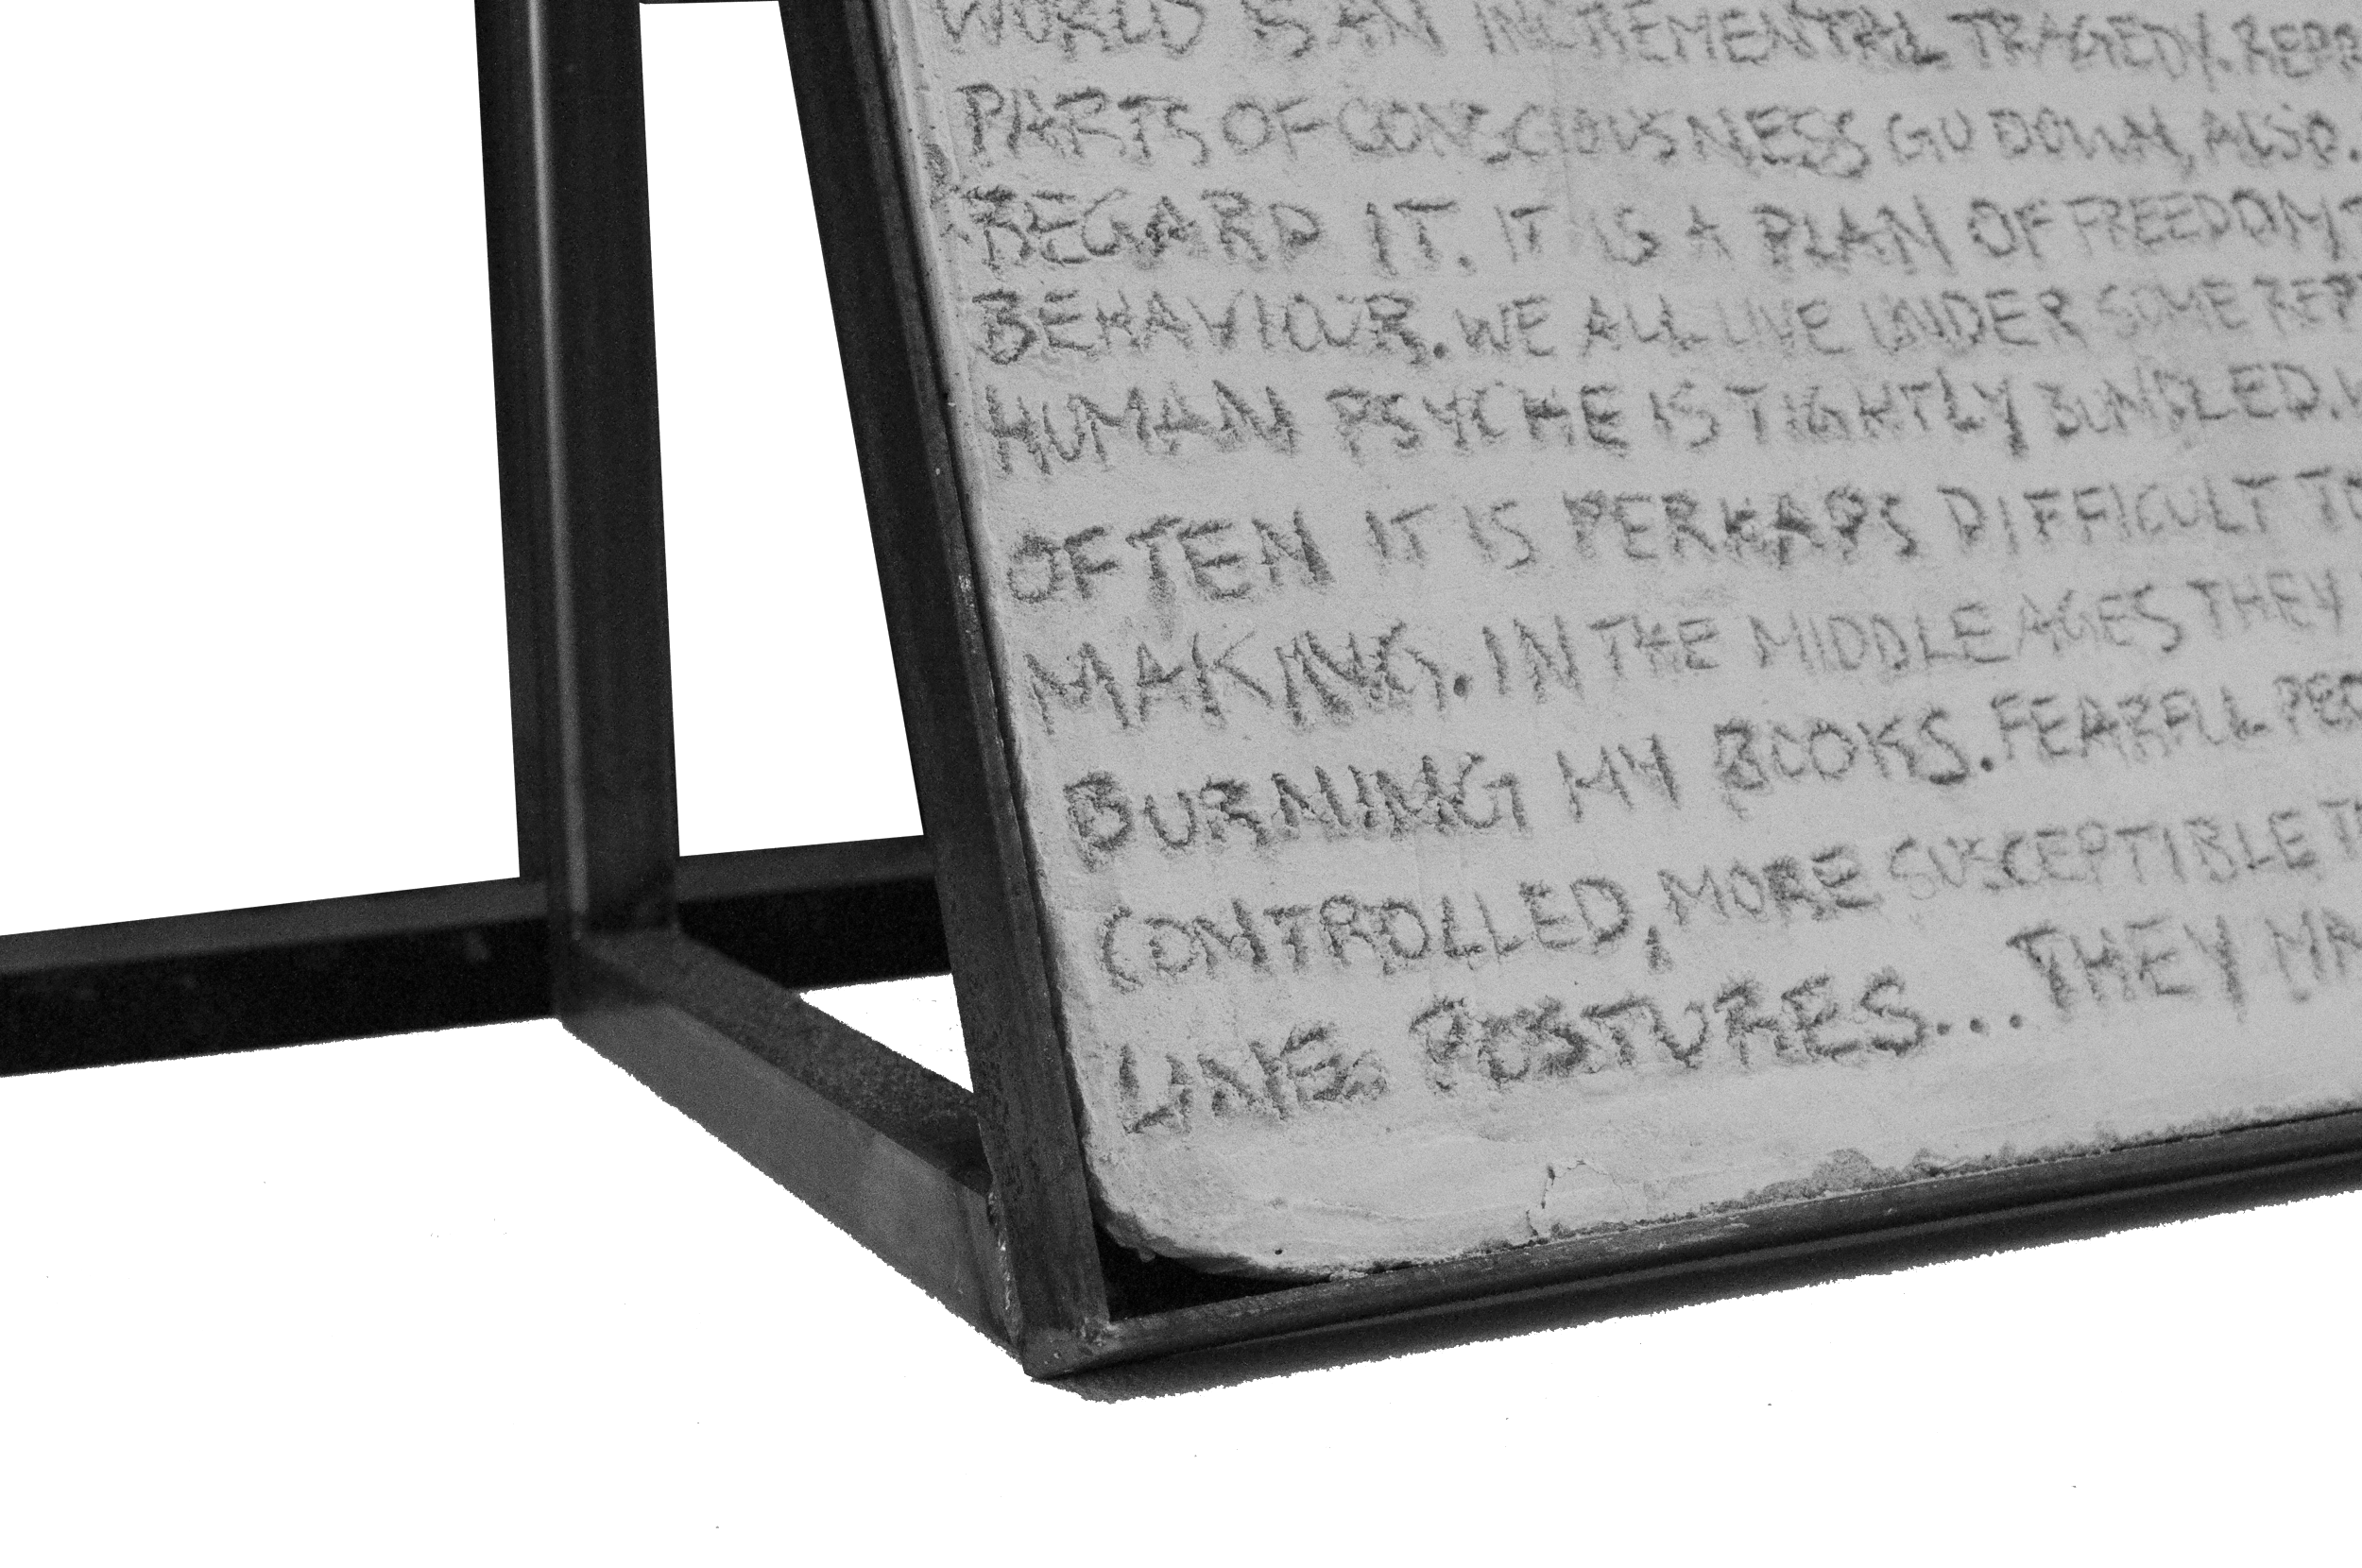 WORLD IS AN INCREMENTAL TRAGEDY. REPR
PARTS OF CONSCIOUSNESS GO DOWN, ALSO.
REGARD IT. IT IS A PLAN OF FREEDOM
BEHAVIOUR. WE ALL LIVE UNDER SOME REP
HUMAN PSYCHE IS TIGHTLY BUNDLED.
OFTEN IT IS PERHAPS DIFFICULT TO
MAKING. IN THE MIDDLE AGES THEY
BURNING MY BOOKS. FEARFUL PEO
CONTROLLED, MORE SUSCEPTIBLE T
LINE. POSTURES... THEY MA